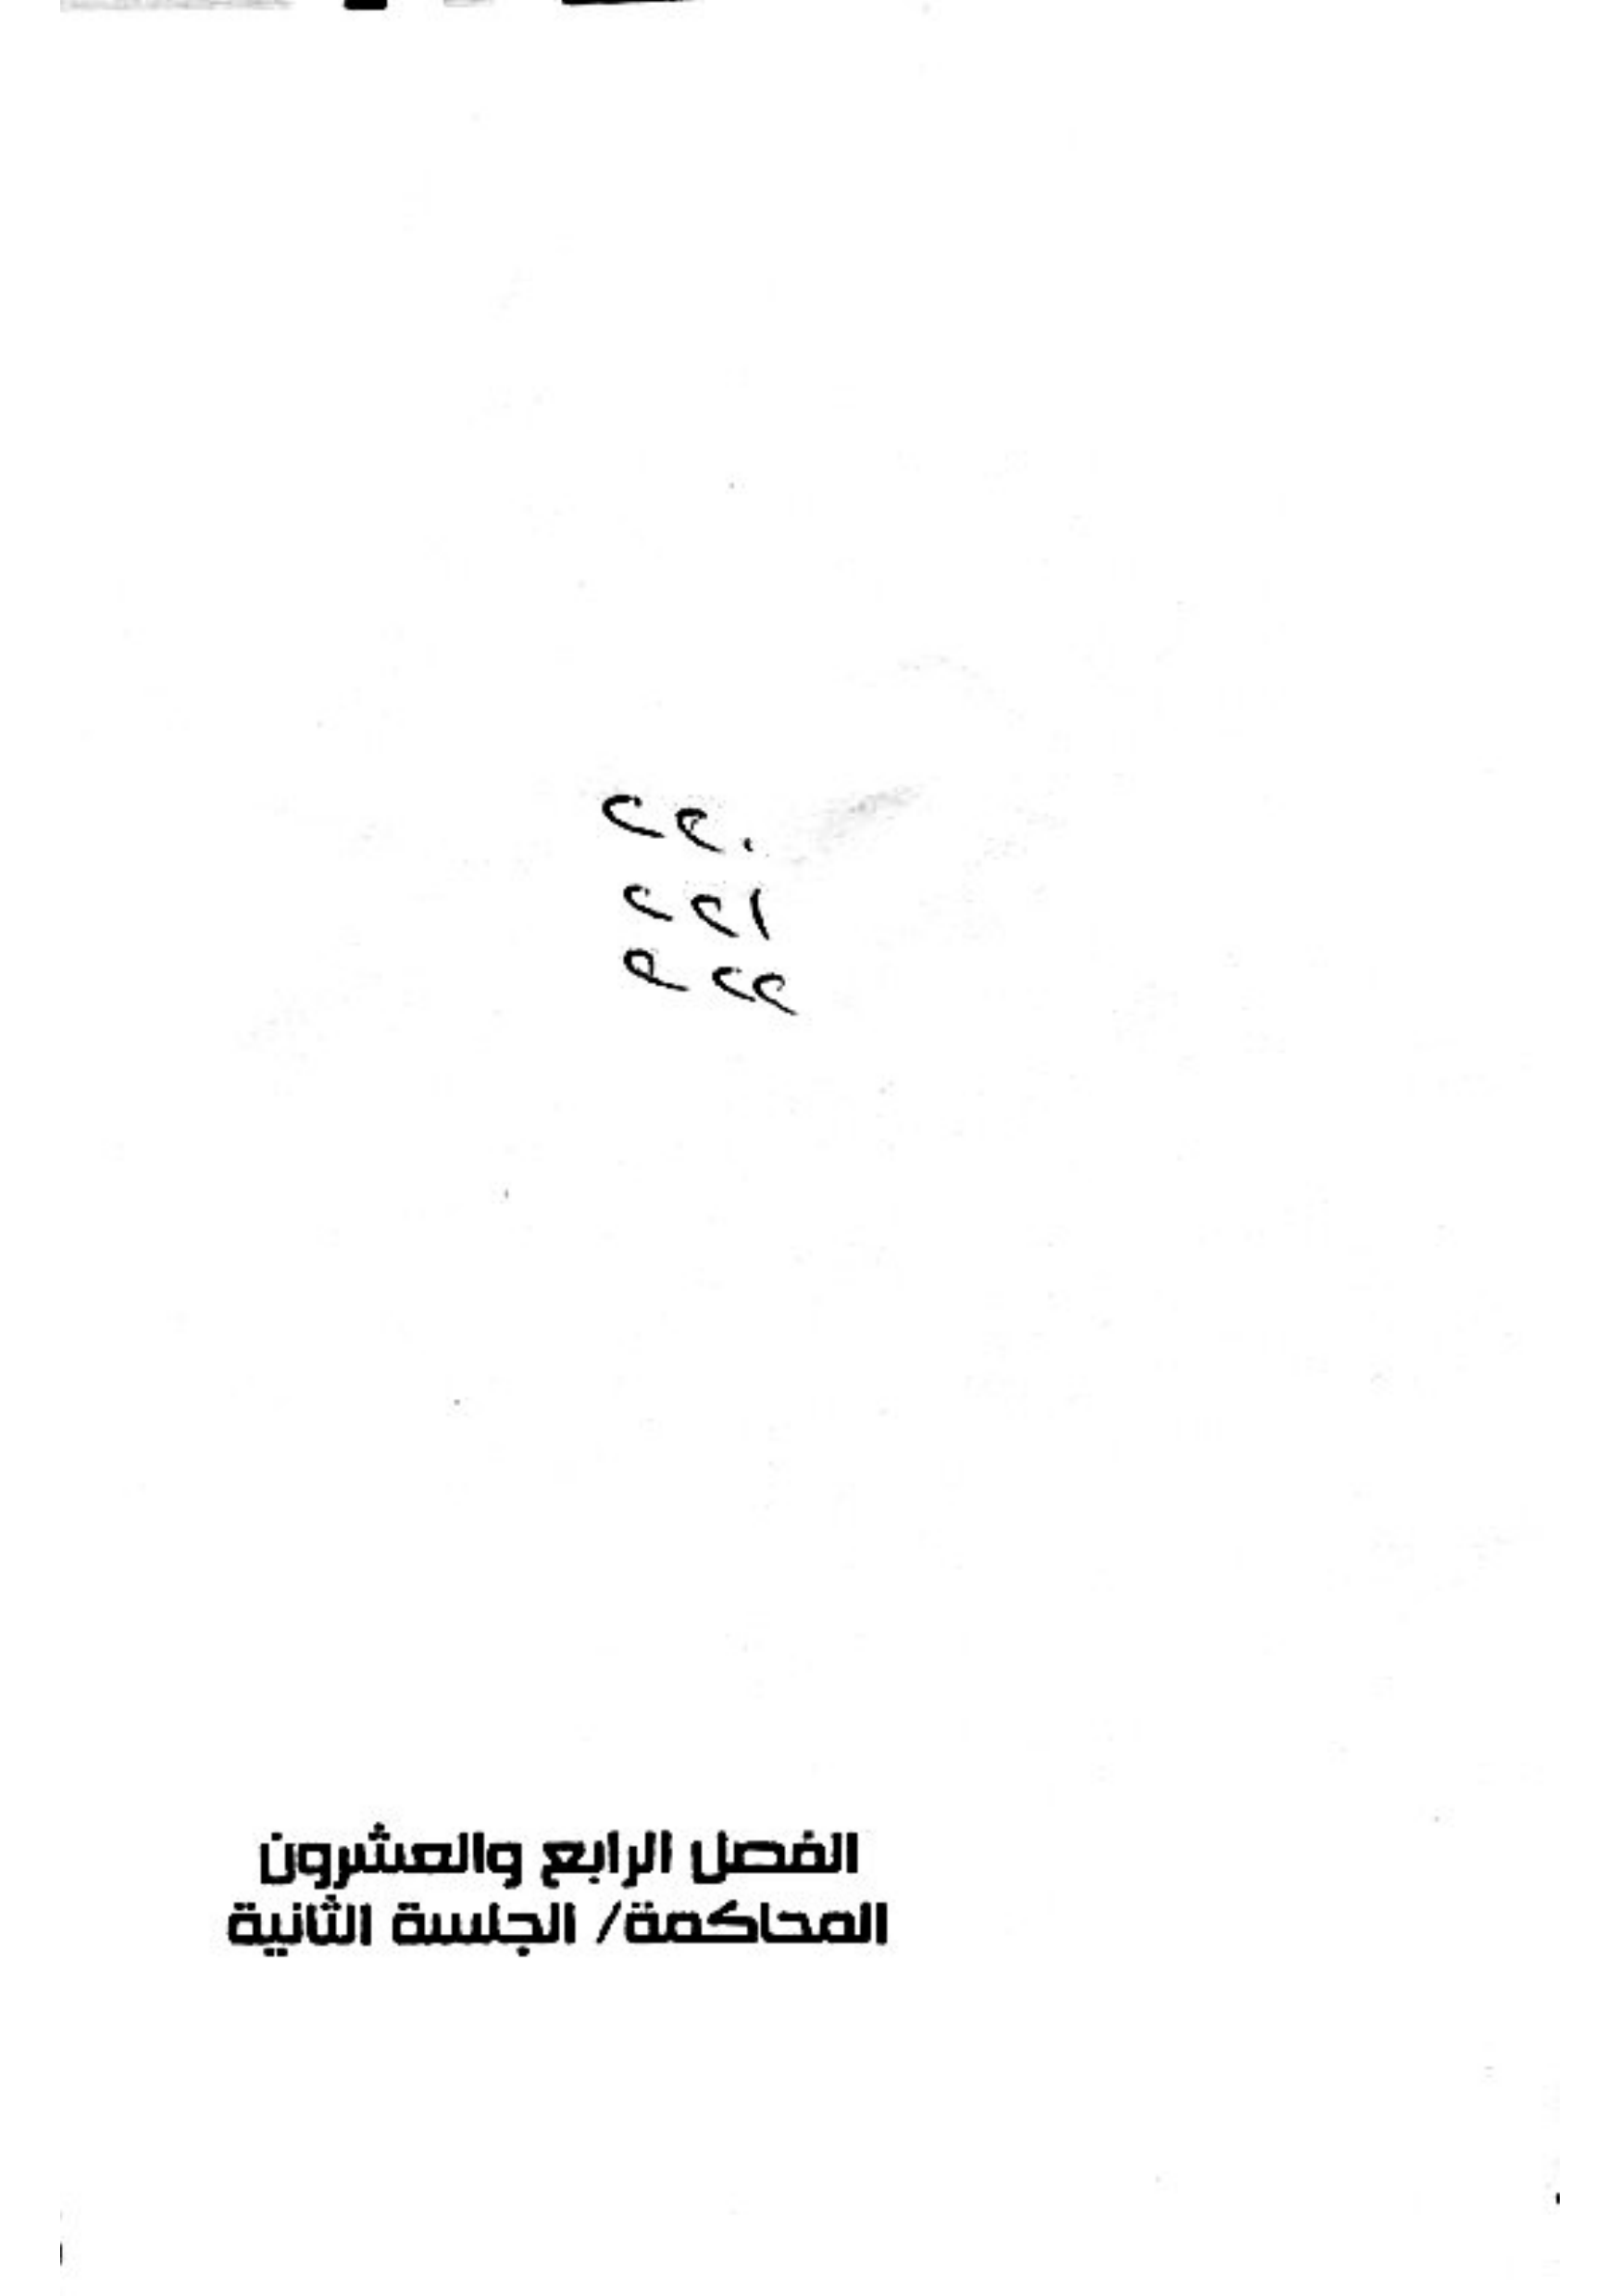 ٢٢٠
٢٢١
٢٢٢
الفصل الرابع والعشرون
المحاكمة/ الجلسة الثانية